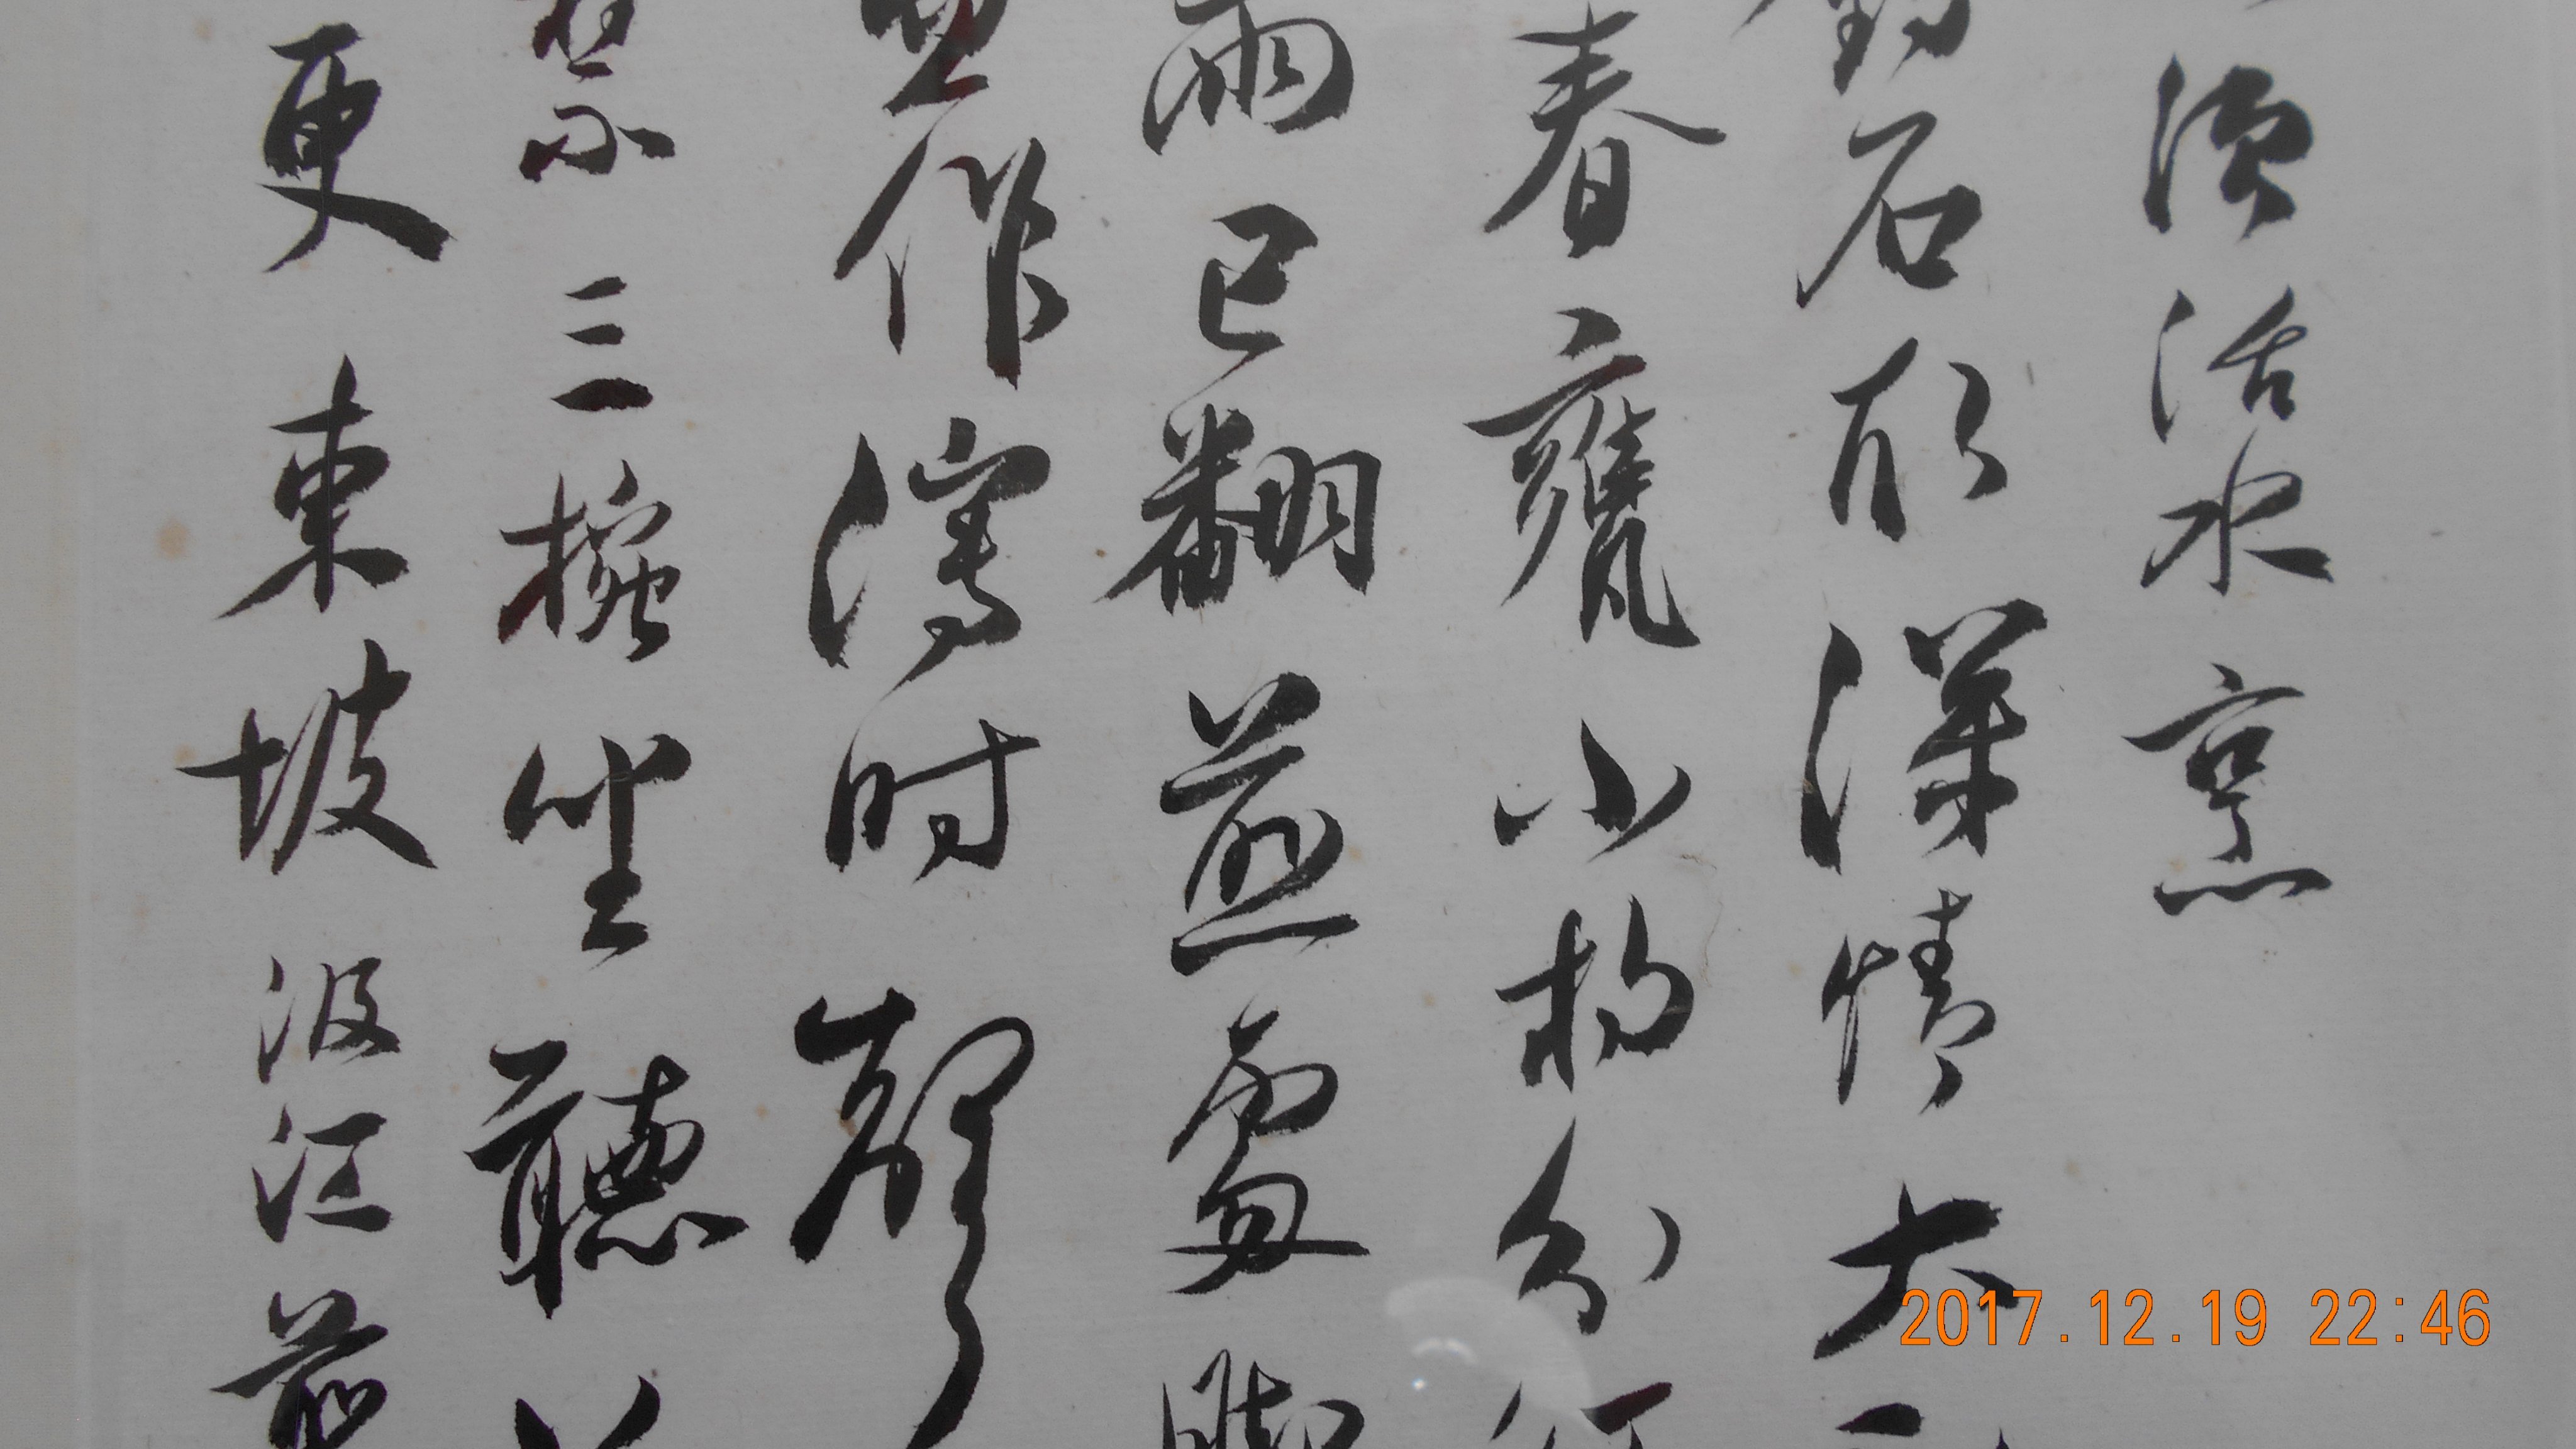 須活水烹
釣石取深情大
春甕小杓分
雨已翻煎處腳
作瀉時聲
禁三椀坐聽
更東坡汲江煎
2017.12.19 22:46